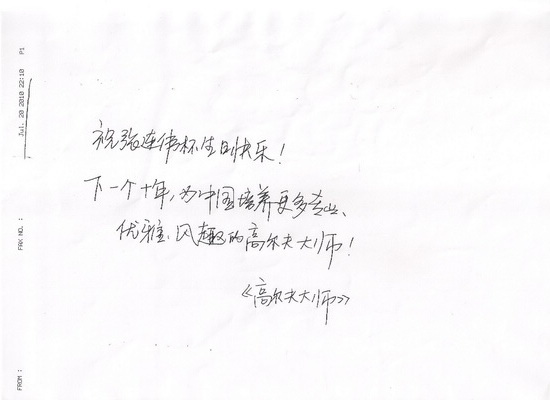 祝张连伟杯生日快乐！
下一个十年，为中国培养更多专业、
优雅、风趣的高尔夫大师！
《高尔夫大师》
FROM :
FAX NO. :
Jul. 20 2010 22:10 P1